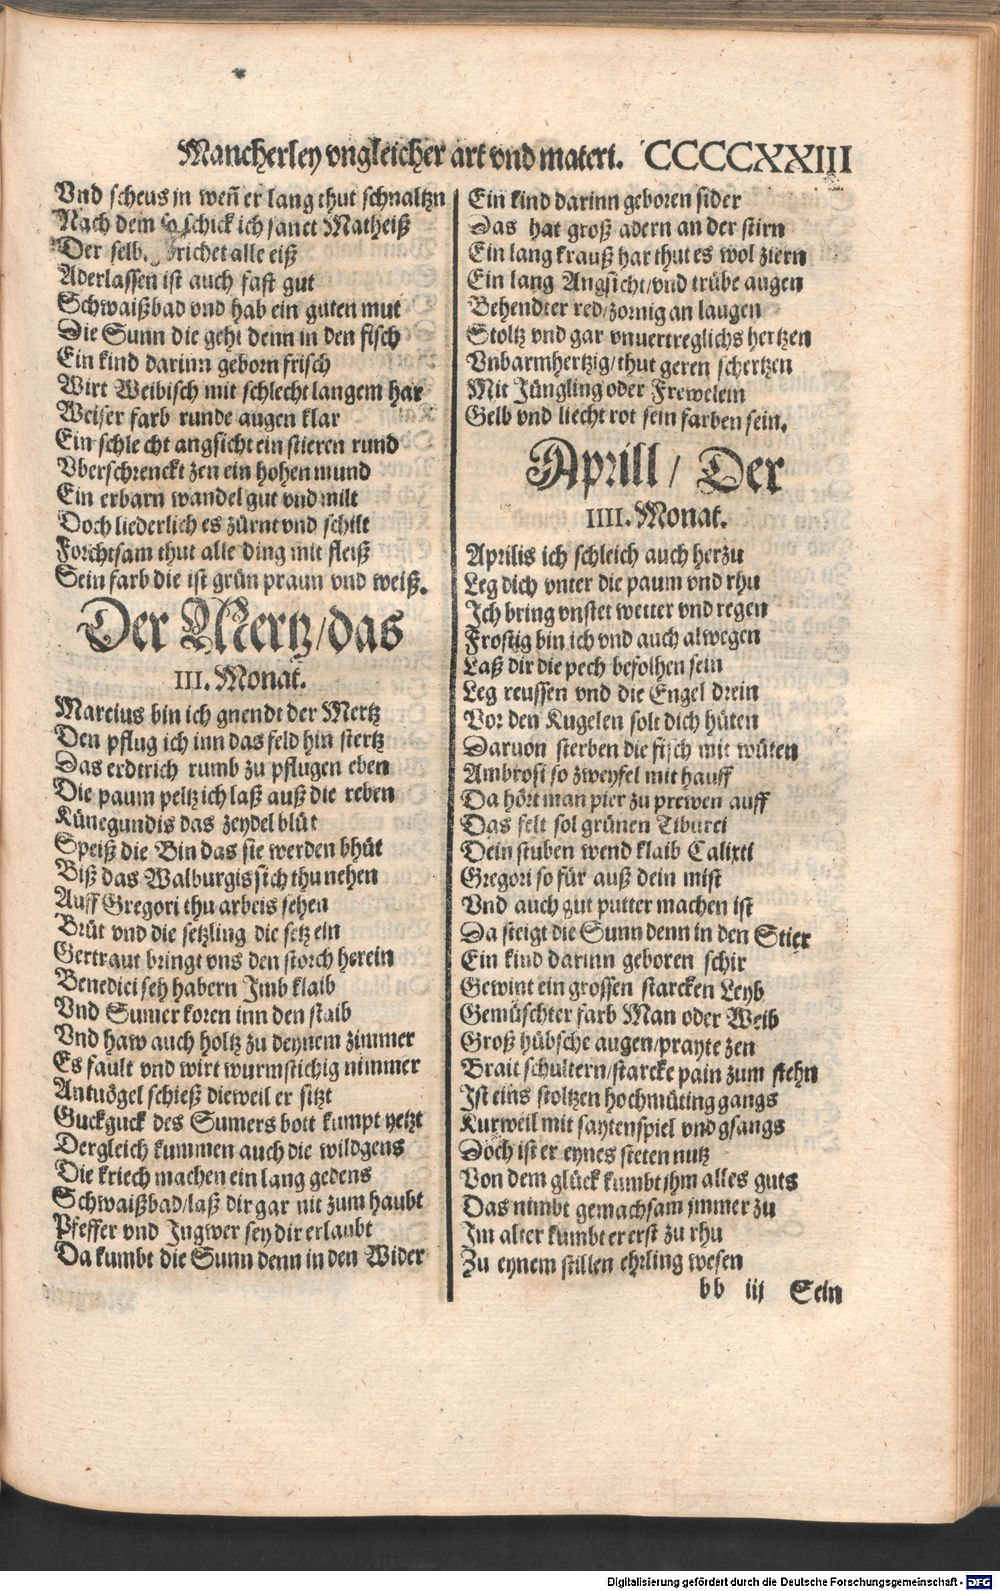 Mancherley vngleicher art vnd materi. CCCCCXXIII
Vnd scheus jn weñ er lang thut schnaltzn
Nach dem so schick ich sanct Matheiß
Der selb. richet alle eiß
Aderlassen ist auch fast gut
Schwaißbad vnd hab ein guten mut
Die Sunn die geht denn in den fisch
Ein kind darinn geborn frisch
Wirt Weibisch mit schlecht langem har
Weiser farb runde augen klar
Ein schlecht angsicht ein stieren rund
Vberschrenckt zen ein hohen mund
Ein erbarn wandel gut vnd milt
Doch liederlich es zürnt vnd schilt
Forchtsam thut alle ding mit fleiß
Sein farb die ist grün praun vnd weiß.
Der Mertz/das
III. Monat.
Marcius bin ich gnendt der Mertz
Den pflug ich inn das feld hin stertz
Das erdtrich rumb zu pflugen eben
Die paum peltz ich laß auß die reben
Künegundis das zeydel blüt
Speiß die Bin das sie werden bhüt
Biß das Walburgis sich thu nehen
Auff Gregori thu arbeis sehen
Brüt vnd die setzling die setz ein
Gertraut bringt vns den storch herein
Benedici seh habern Imb klaib
Vnd Sumer koren inn den staib
Vnd haw auch holtz zu deynem zimmer
Es fault vnd wirt wurmstichig nimmer
Antuögel schieß dieweil er sitzt
Guckguck des Sumers bott kumpt yetzt
Dergleich kummen auch die wildgens
Die kriech machen ein lang gedens
Schwaißbad/laß dir gar nit zum haubt
Pfeffer vnd Jngwer sey dir erlaubt
Da kumbt die Sunn denn in den Wider
Ein kind darinn geboren sider
Das hat groß adern an der stirn
Ein lang krauß har thut es wol ziern
Ein lang Angsicht/vnd trübe augen
Behendter red/zornig an laugen
Stoltz vnd gar vnuertreglichs hertzen
Vnbarmhertzig/thut geren schertzen
Mit Jüngling oder Frewelein
Gelb vnd liecht rot sein farben sein.
Aprill/ Der
IIII. Monat.
Aprilis ich schleich auch herzu
Leg dich vnter die paum vnd rhu
Ich bring vnstet wetter vnd regen
Frostig bin ich vnd auch alwegen
Laß dir die pech befolhen sein
Leg reussen vnd die Engel drein
Vor den Kugelen solt dich hüten
Daruon sterben die fisch mit wüten
Ambrosi so zweyfel mit hauff
Da hört man pier zu prewen auff
Das felt sol grünen Tiburci
Dein stuben wend klaib Calixti
Gregori so für auß dein mist
Vnd auch gut putter machen ist
Da steigt die Sunn denn in den Stier
Ein kind darinn geboren schir
Gewint ein grossen starcken Leyb
Gemüschter farb Man oder Weib
Groß hübsche augen/prayte zen
Brait schultern/starcke pain zum stehn
Ist eins stoltzen hochmüting gangs
Kurweil mit saytenspiel vnd gsangs
Doch ist er eynes steten nutz
Von dem glück kumbt jhm alles guts
Das nimbt gemachsam jmmer zu
Im alter kumbt er erst zu rhu
Zu eynem stillen ehrling wesen
bb iij Sein
Digitalisierung gefördert durch die Deutsche Forschungsgemeinschaft - DFG